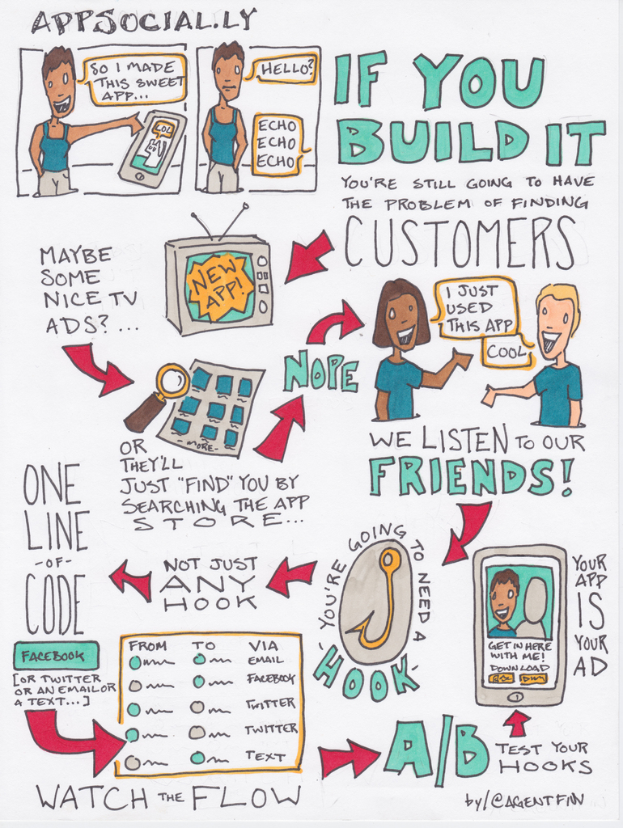 APPSOCIAL.LY
SO I MADE
THIS SWEET
APP...
LOL
HELLO?
ECHO
ECHO
ECHO
IF YOU
BUILD IT
YOU'RE STILL GOING TO HAVE
THE PROBLEM OF FINDING
CUSTOMERS
MAYBE
SOME
NICE TV
ADS?...
NEW
APP!
-MORE-
OR
THEY'LL
JUST "FIND" YOU BY
SEARCHING THE APP
STORE...
NOPE
I JUST
USED
THIS APP
COOL
WE LISTEN TO OUR
FRIENDS!
YOU'RE GOING TO NEED A
HOOK
NOT JUST
ANY
HOOK
ONE
LINE
-OF-
CODE
FACEBOOK
[OR TWITTER
OR AN EMAIL OR
A TEXT...]
FROM TO VIA
EMAIL
FACEBOOK
TWITTER
TWITTER
TEXT
WATCH THE FLOW
A/B
TEST YOUR
HOOKS
GET IN HERE
WITH ME!
DOWNLOAD
YOUR
APP
IS
YOUR
AD
by/@AGENTFIN